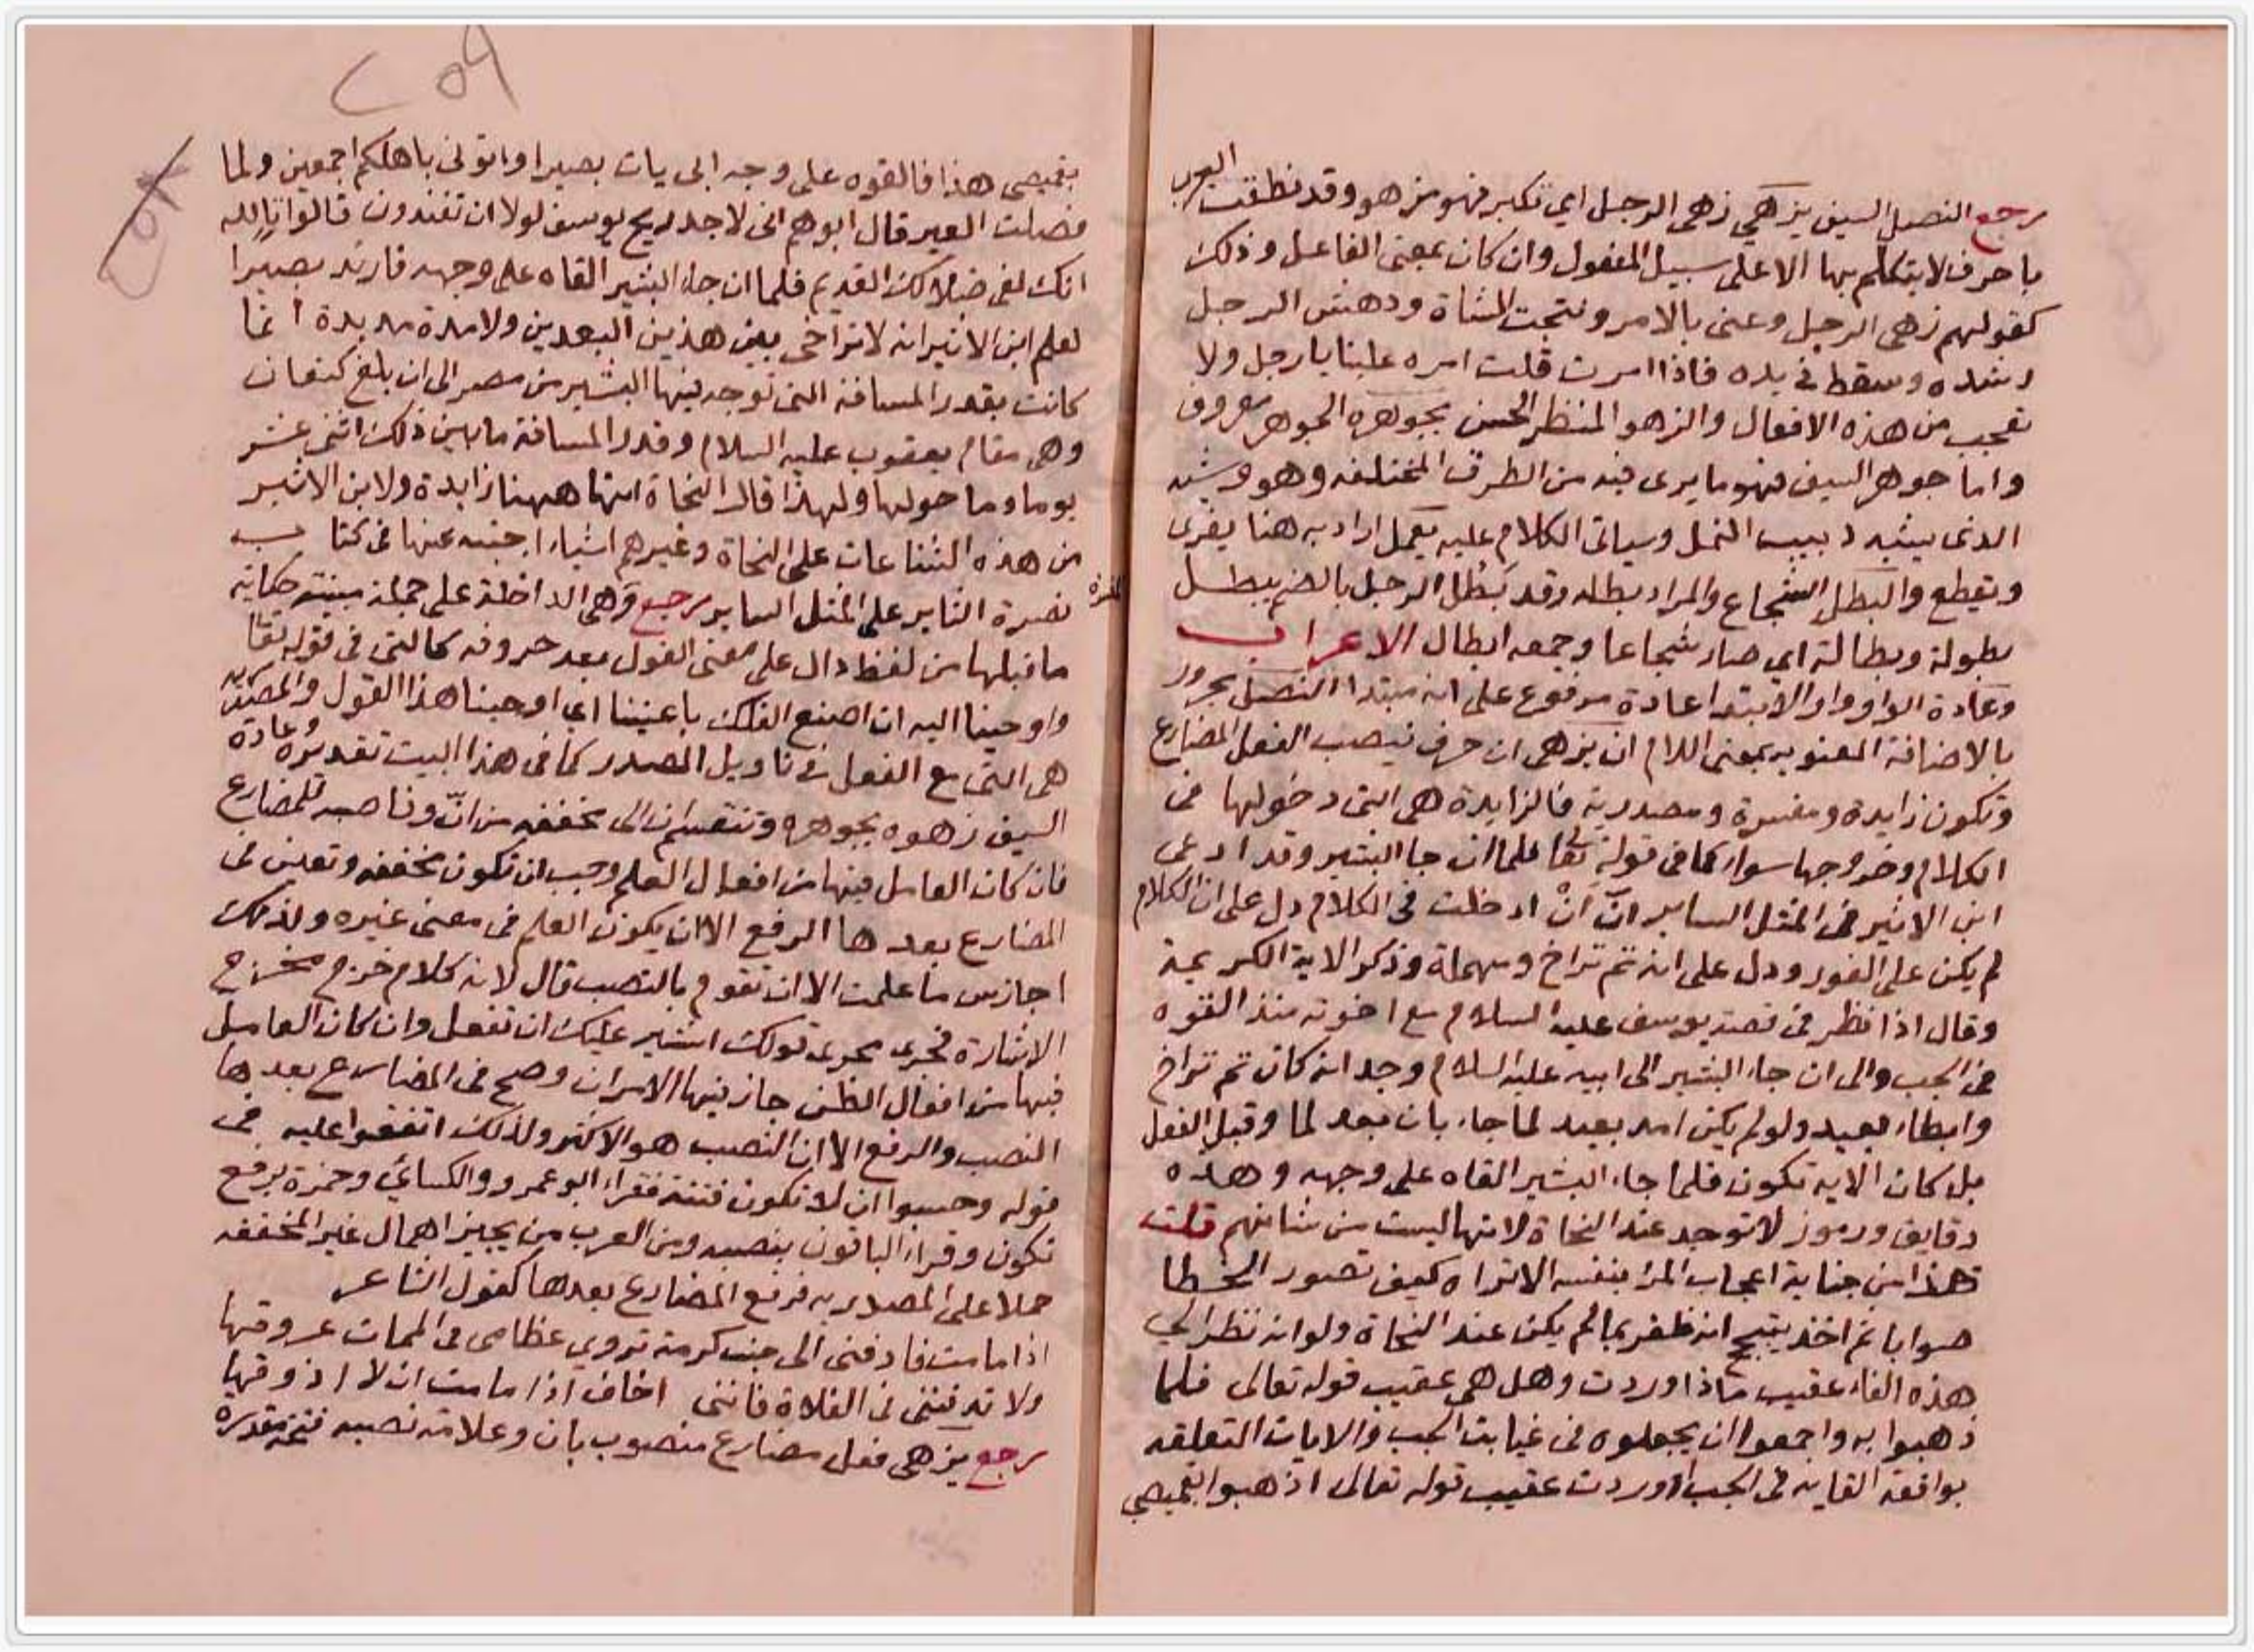 رجع النصل السيف يزهي زهى الرجل اي تكبر فهو مزهو وقد نطقت العرب
باحرف لا يتكلم بها الا على سبيل المفعول وان كان بمعنى الفاعل وذلك
كقولهم زهى الرجل وعنى بالامر ونتجت الشاة ودهش الرجل
وشده وسقط في يده فاذا امرت قلت امره علينا يا رجل ولا
تعجب من هذه الافعال والزهو المنظر الحسن بجوهره الجوهر معروف
واما جوهر السيف فهو ما يرى فيه من الطرق المختلفه وهو وشيه
الذى يشبه دبيب النمل وسياتى الكلام عليه يعمل اراد به هنا يفرى
ويقطع والبطل الشجاع والمراد بطله وقد بَطُل الرجل بالضم يبطل
بطولة وبطالة اي صار شجاعا وجمعه ابطال الاعراب
وعادة الواو واو الابتدا عادة مرفوع على انه مبتدا النصل مجرور
بالاضافة المعنويه بمعنى اللام ان يزهى ان حرف ينصب الفعل المضارع
وتكون زايدة ومفسرة ومصدرية فالزايدة هى التى دخولها فى
الكلام وخروجها سواء كما فى قوله تعا فلما ان جا البشير وقد ادعى
ابن الاثير فى المثل الساير انّ اَنْ اذ دخلت فى الكلام دل على ان الكلام
لم يكن على الفور ودل على انه ثم تراخ ومهملة وذكر الاية الكريمة
وقال اذا نظر فى قصة يوسف عليه السلام مع اخوته منذ القوه
فى الجب والى ان جاء البشير الى ابيه عليه السلام وجد انه كان ثم تراخ
وابطاء بعيد ولو لم يكن امد بعيد لما جاء بان بعد لما وقبل الفعل
بل كان الايه تكون فلما جاء البشير القاه على وجهه وهذه
دقايق ورموز لا توجد عند النحاة لانها ليست من شانهم قلت
هذا من جناية اعجاب المرء بنفسه الا تراه كيف تصور الخطا
صوابا ثم اخذ يتبجح انه ظفر بما لم يكن عند النحاة ولو انه نظر الي
هذه الفاء عقيب ماذا وردت وهل هى عقيب قوله تعالى فلما
ذهبوا به واجمعوا ان يجعلوه فى غيابت الجب والايات المتعلقه
بواقعة القايه فى الجب او وردت عقيب قوله تعالى اذهبوا بقميصي
٢٥٩
بقميصى هذا فالقوه على وجه ابى يات بصيرا واتونى باهلكم اجمعين ولما
فصلت العير قال ابوهم انى لاجد ريح يوسف لولا ان تفندون قالوا تالله
انك لفى ضلالك القديم فلما ان جاء البشير القاه على وجهه فارتد بصيرا
لعلم ابن الاثير انه لا تراخى بين هذين البعدين ولا مدة مديدة انما
كانت بقدر المسافة التى توجه فيها البشير من مصر الى ان بلغ كنعان
وهى مقام يعقوب عليه السلام وقدر المسافة ما بين ذلك اثنى عشر
يوما وما حولها ولهذا قال النحاة انها ههنا زايدة ولابن الاثير
من هذه الشناعات على النحاة وغيرهم اشياء اجبته عنها فى كتاب
نصرة الثاير على المثل الساير رجع وهى الداخلة على جملة مبينة حكاية
ما قبلها من لفظ دال على معنى القول بعد حروفه كالتى فى قوله تعا
واوحينا اليه ان اصنع الفلك باعيننا اي اوحينا هذا القول والمصدريه
هى التى مع الفعل فى تاويل المصدر كما فى هذا البيت تقديره وعادة
السيف زهوه بجوهره وتنقسم ان الى مخففه من انّ وناصبه للمضارع
فان كان العامل فيها من افعال العلم وجب ان تكون مخففه وتعين فى
المضارع بعدها الرفع الا ان يكون العلم فى معنى غيره ولذلك
اجاز س ما علمت الا ان تقوم بالنصب قال لانه كلام خرج مخرج
الاشارة فجرى مجرى قولك اشير عليك ان تفعل وان كان العامل
فيها من افعال الظن جاز فيها الامران وصح فى المضارع بعدها
النصب والرفع الا ان النصب هو الاكثر ولذلك اتفقوا عليه فى
قوله وحسبوا ان لا تكون فتنة فقراء ابو عمرو والكساي وحمزة برفع
تكون وقراء الباقون بنصبه ومن العرب من يجيز اهمال غير المخففه
حملا على المصدريه فرفع المضارع بعدها كقول الشاعر
اذا ما مت فادفنى الى جنب كرمة تروي عظامى فى الممات عروقها
ولا تدفننى فى الفلاة فاننى اخاف اذا ما مت ان لا اذوقها
رجع يزهى فعل مضارع منصوب بان وعلامة نصبه فتحة مقدره